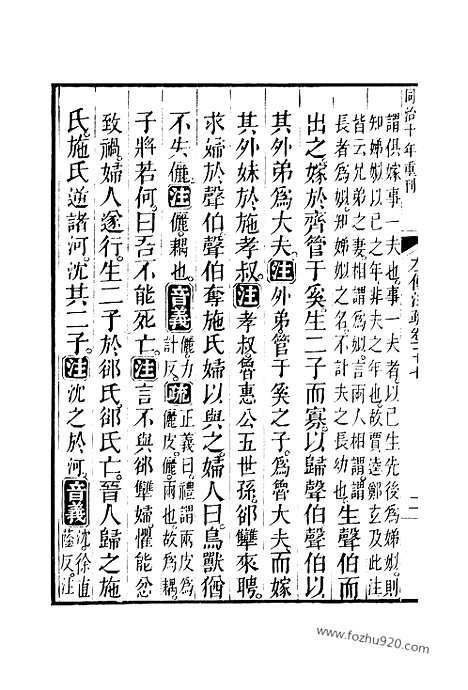 同治十年重刊
左傳注疏卷二十七
謂俱嫁事一夫也事一夫者以己生先後爲娣姒則
知娣姒以己之年非夫之年也故賈逵鄭玄及此注
皆云兄弟之妻相謂爲姒言兩人相謂謂
長者爲姒知娣姒之名不計夫之長幼也生聲伯而
出之嫁於齊管于奚生二子而寡以歸聲伯聲伯以
其外弟爲大夫注外弟管于奚之子爲魯大夫而嫁
其外妹於施孝叔注孝叔魯惠公五世孫郤犨來聘
求婦於聲伯聲伯奪施氏婦以與之婦人曰鳥獸猶
不失儷注儷耦也音義儷力
計反疏正義曰禮謂兩皮爲
儷皮儷兩也故爲耦
子將若何曰吾不能死亡注言不與郤犨婦懼能忿
致禍婦人遂行生二子於郤氏郤氏亡晉人歸之施
氏施氏逆諸河沈其二子注沈之於河音義沈徐直
蔭反注
www.fozhu920.com